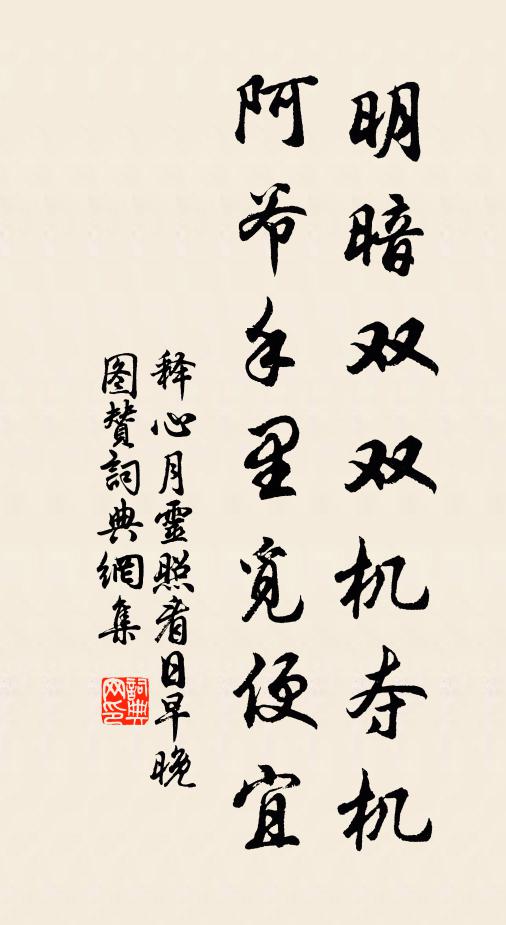 明暗双双机夺机
阿爷手里觅便宜
释心月靈照看日早晚
图赞詞典網集
詞典网印